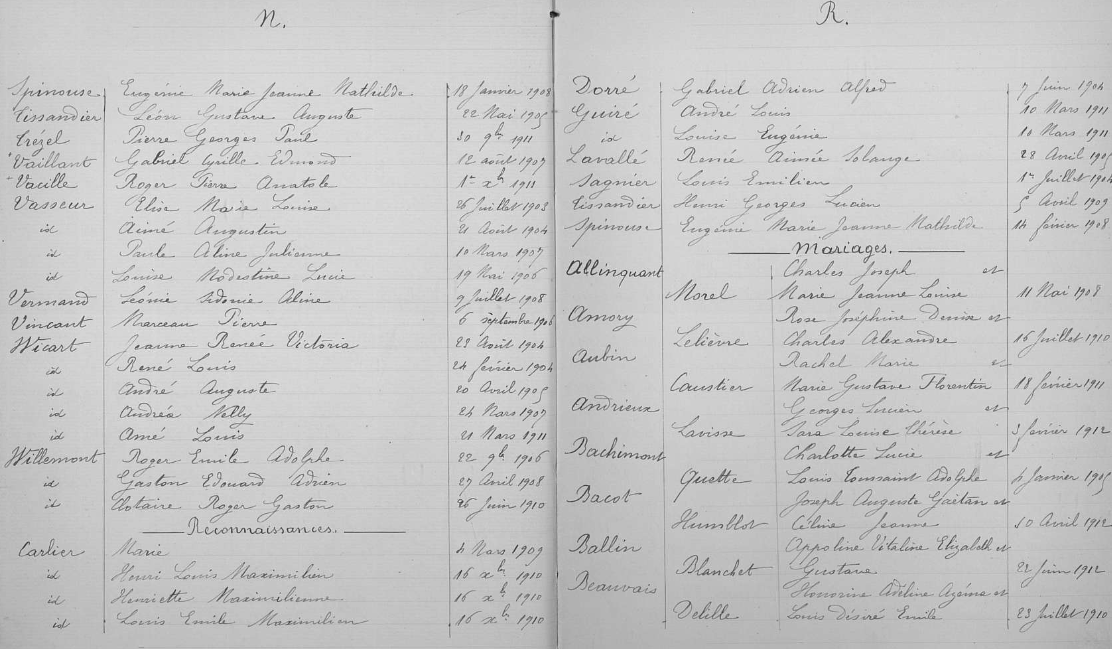 N.
Spinouse Eugénie Marie Jeanne Mathilde 18 Janvier 1908
Tissandier Léon Gustave Auguste 22 Mai 1905
Trézel Pierre Georges Paul 30 9bre 1911
Vaillant Gabriel Cyrille Edmond 12 août 1907
Vacille Roger Pierre Anatole 1er xbre 1911
Vasseur Elise Marie Louise 26 Juillet 1903
id Aimé Augustin 21 Août 1904
id Paule Aline Julienne 10 Mars 1907
id Louise Modestine Lucie 19 Mai 1906
Vermand Léonie Sidonie Aline 9 Juillet 1908
Vincant Marceau Pierre 6 septembre 1906
Wicart Jeanne Renée Victoria 23 Août 1904
id René Louis 24 février 1904
id André Auguste 20 Avril 1905
id Andréa Nelly 24 Mars 1907
id Amé Louis 21 Mars 1911
Willemont Roger Emile Adolphe 22 9bre 1906
id Gaston Edouard Adrien 27 Avril 1908
id Clotaire Roger Gaston 26 Juin 1910
Reconnaissances.
Carlier Marie 4 Mars 1909
id Henri Louis Maximilien 16 xbre 1910
id Henriette Maximilienne 16 xbre 1910
id Louis Emile Maximilien 16 xbre 1910
R.
Dorré Gabriel Adrien Alfred 7 Juin 1904
Guiré André Louis 10 Mars 1911
id Louise Eugénie 10 Mars 1911
Lavallé Renée Aimée Solange 28 Avril 1905
Sagnier Louis Emilien 1er Juillet 1904
Tissandier Henri Georges Lucien 5 Avril 1909
Spinouse Eugénie Marie Jeanne Mathilde 14 février 1908
Mariages.
Allinquant Charles Joseph et
Morel Marie Jeanne Louise 11 Mai 1908
Amory Rose Joséphine Denise et
Lelièvre Charles Alexandre 16 Juillet 1910
Aubin Rachel Marie et
Caustier Marie Gustave Florentin 18 février 1911
Andrieux Georges Lucien et
Lavisse Sara Louise Thérèse 3 février 1912
Bachimont Charlotte Lucie et
Quette Louis Toussaint Adolphe 4 Janvier 1905
Bacot Joseph Auguste Gaëtan et
Humblot Céline Jeanne 10 Avril 1912
Ballin Appoline Vitaline Elizabeth et
Blanchet Gustave 22 Juin 1912
Beauvais Honorine Adeline Azéma et
Delille Louis Désiré Emile 23 Juillet 1910